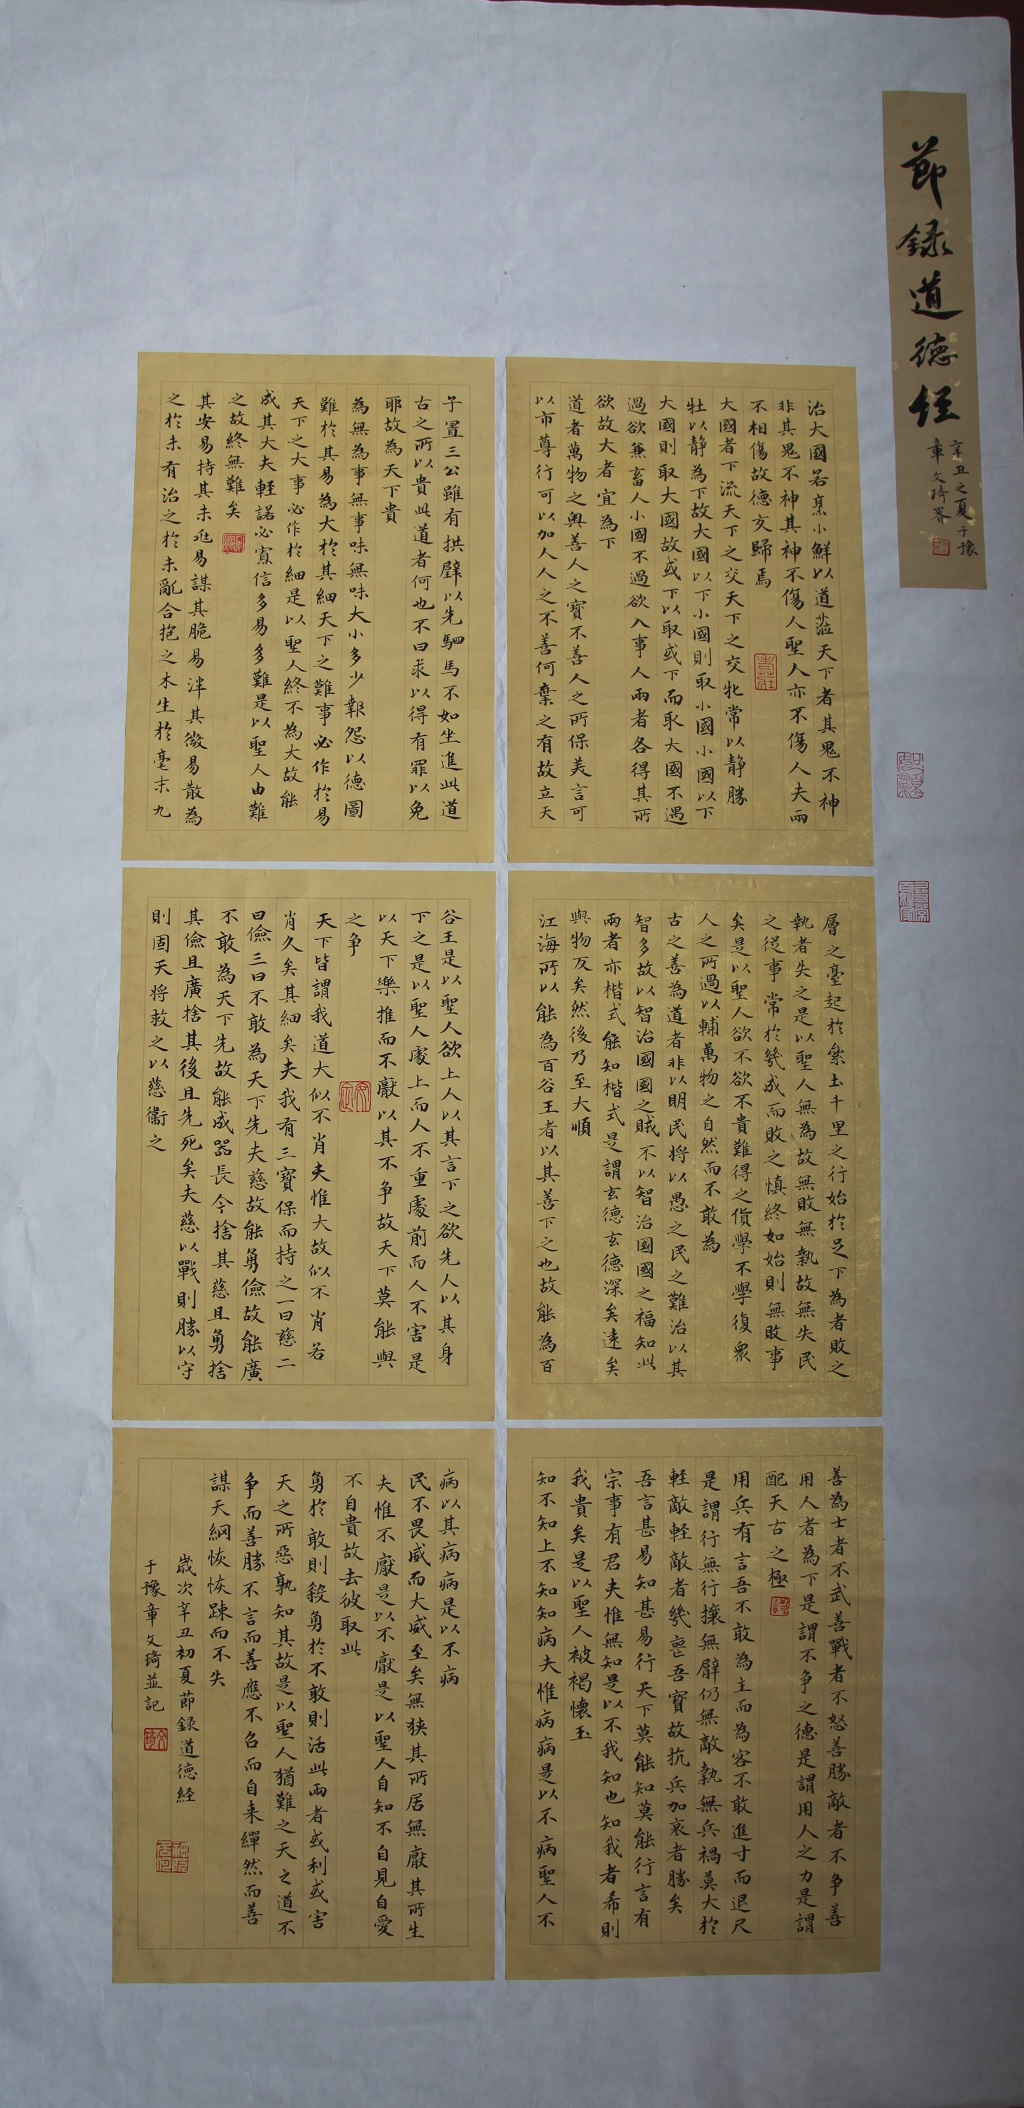 節錄道德经
辛丑之夏于豫
章文琦署
治大國若烹小鮮以道蒞天下者其鬼不神
非其鬼不神其神不傷人聖人亦不傷人夫兩
不相傷故德交歸焉
大國者下流天下之交天下之交牝常以静勝
牡以静為下故大國以下小國則取小國小國以下
大國則取大國故或下以取或下而取大國不過
過欲兼畜人小國不過欲入事人兩者各得其所
欲故大者宜為下
道者萬物之奥善人之寶不善人之所保美言可
以市尊行可以加人人之不善何棄之有故立天
子置三公雖有拱璧以先駟馬不如坐進此道
古之所以貴此道者何也不曰求以得有罪以免
耶故為天下貴
為無為事無事味無味大小多少報怨以德圖
難於其易為大於其細天下之難事必作於易
天下之大事必作於細是以聖人終不為大故能
成其大夫輕諾必寡信多易多難是以聖人由難
之故終無難矣
其安易持其未兆易謀其脆易泮其微易散為
之於未有治之於未亂合抱之木生於毫末九
層之臺起於絫土千里之行始於足下為者敗之
執者失之是以聖人無為故無敗無執故無失民
之從事常於幾成而敗之慎終如始則無敗事
矣是以聖人欲不欲不貴難得之貨學不學復眾
人之所過以輔萬物之自然而不敢為
古之善為道者非以明民將以愚之民之難治以其
智多故以智治國國之賊不以智治國國之福知此
兩者亦楷式能知楷式是謂玄德玄德深矣遠矣
與物反矣然後乃至大順
江海所以能為百谷王者以其善下之也故能為百
谷王是以聖人欲上人以其言下之欲先人以其身
下之是以聖人處上而人不重處前而人不害是
以天下樂推而不厭以其不争故天下莫能與
之争
天下皆謂我道大似不肖夫惟大故似不肖若
肖久矣其細矣夫我有三寶保而持之一曰慈二
曰儉三曰不敢為天下先夫慈故能勇儉故能廣
不敢為天下先故能成器長今捨其慈且勇捨
其儉且廣捨其後且先死矣夫慈以戰則勝以守
則固天将救之以慈衞之
善為士者不武善戰者不怒善勝敵者不争善
用人者為下是謂不争之德是謂用人之力是謂
配天古之極
用兵有言吾不敢為主而為客不敢進寸而退尺
是謂行無行攘無臂仍無敵執無兵禍莫大於
輕敵輕敵者幾喪吾寶故抗兵加哀者勝矣
吾言甚易知甚易行天下莫能知莫能行言有
宗事有君夫惟無知是以不我知也知我者希則
我貴矣是以聖人被褐懷玉
知不知上不知知病夫惟病病是以不病聖人不
病以其病病是以不病
民不畏威而大威至矣無狭其所居無厭其所生
夫惟不厭是以不厭是以聖人自知不自見自愛
不自貴故去彼取此
勇於敢則殺勇於不敢則活此兩者或利或害
天之所惡孰知其故是以聖人猶難之天之道不
争而善勝不言而善應不召而自来繟然而善
謀天網恢恢踈而不失
歲次辛丑初夏節錄道德経
于豫章文琦並記